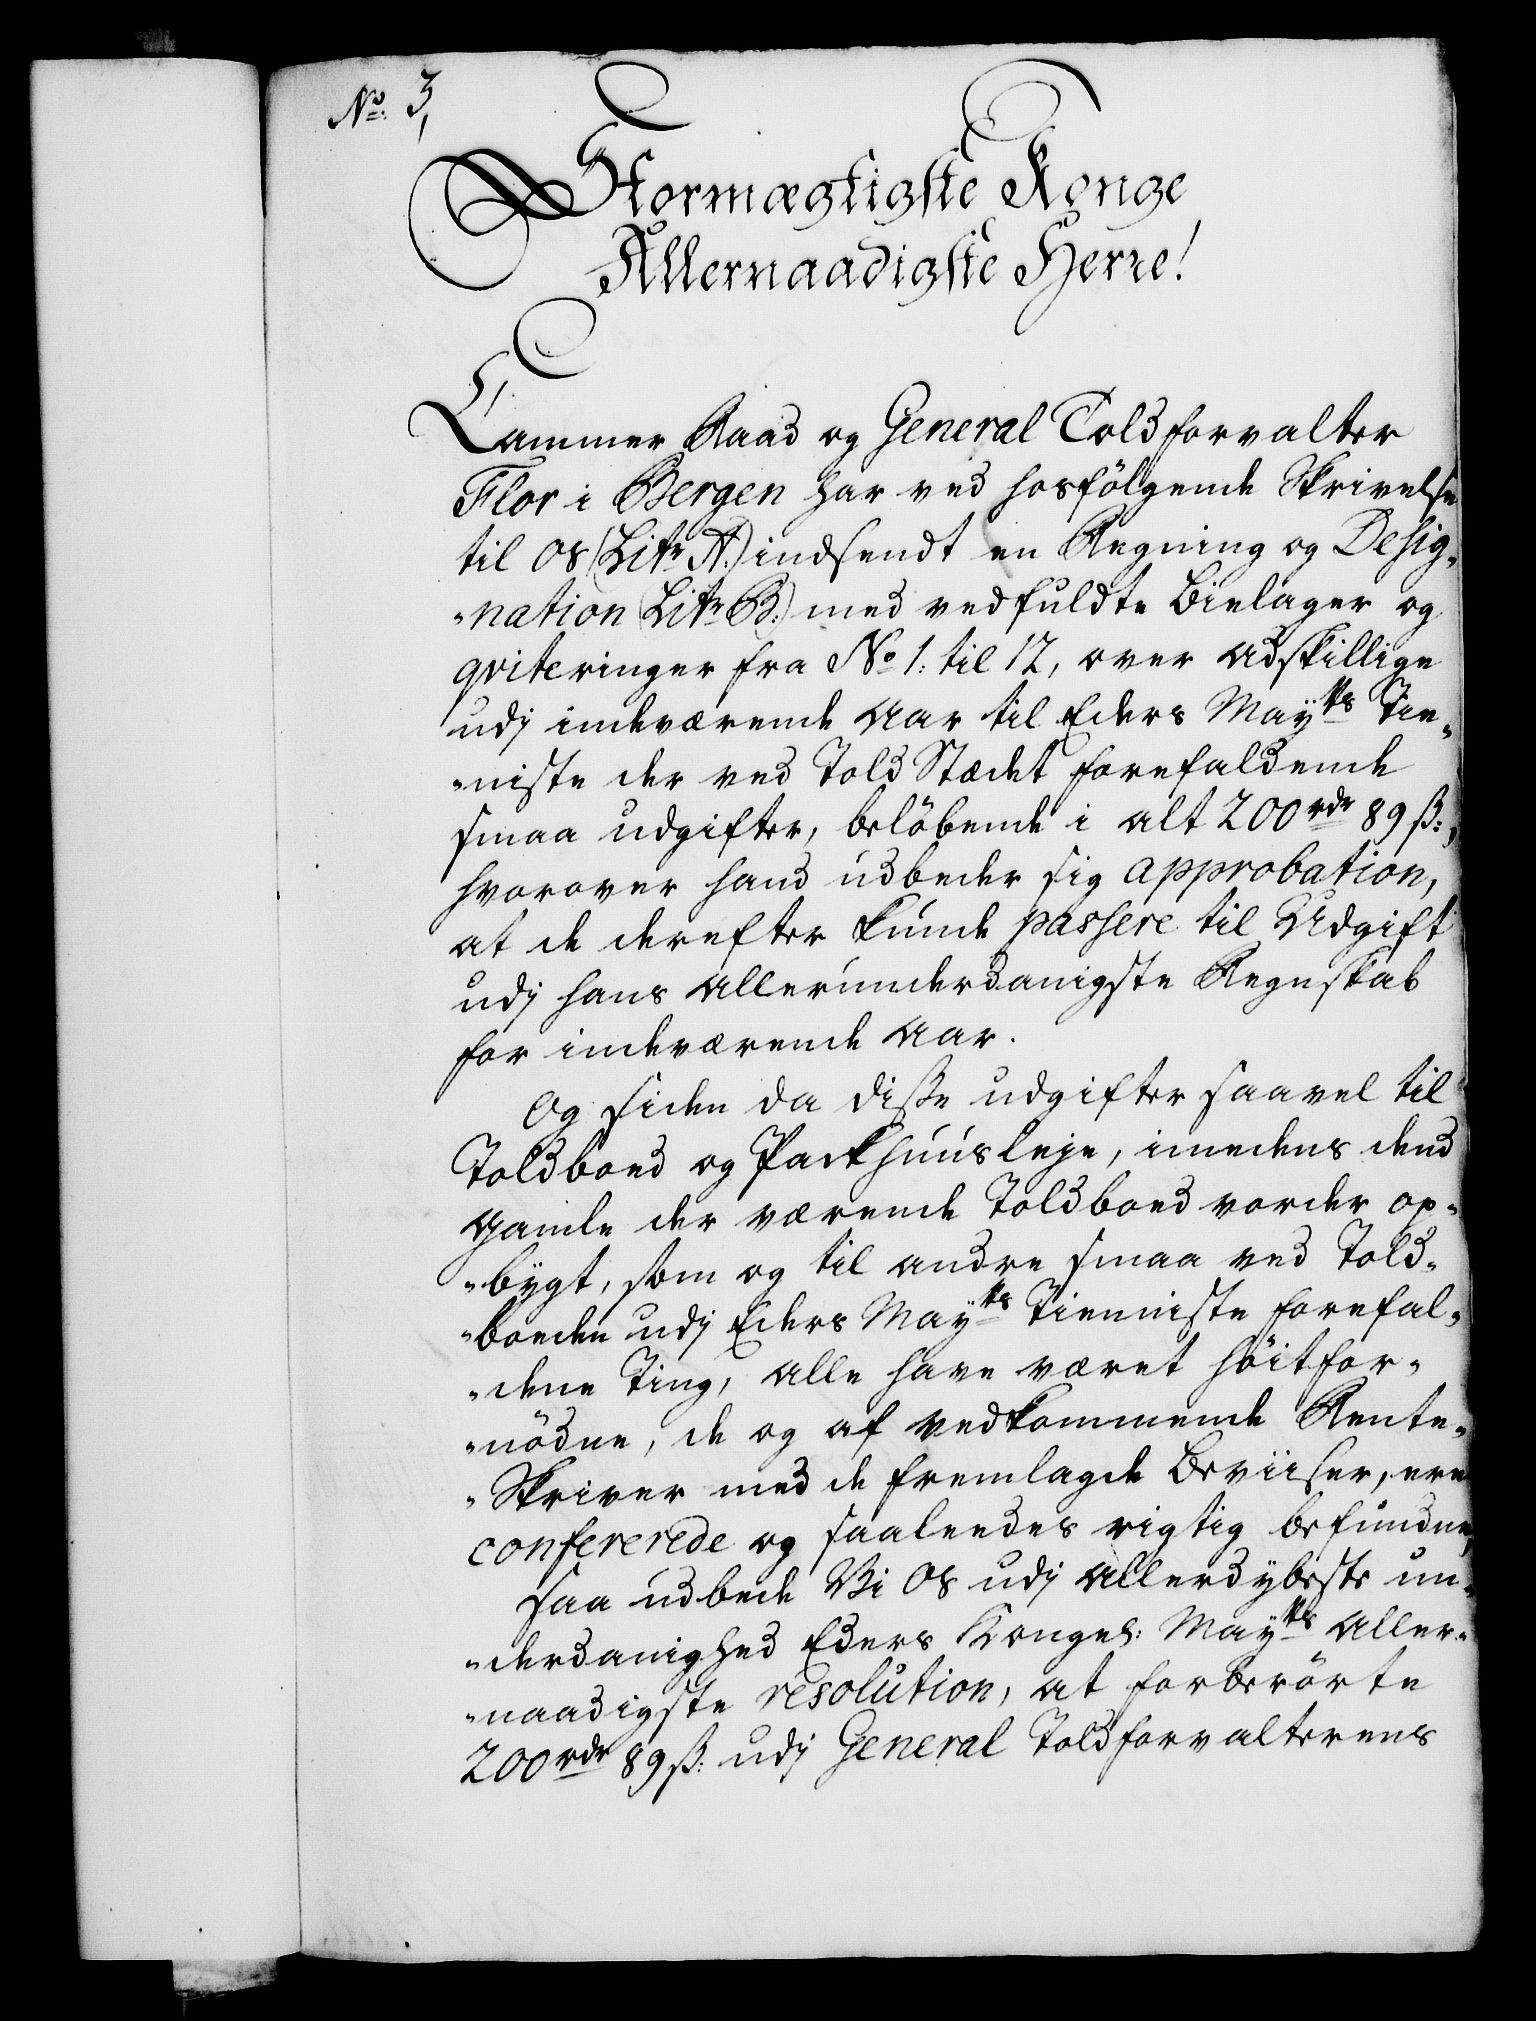 No. 3,
Stormægtigste Konge
Allernaadigste Herre!
Cammer Raad og General Toldforvalter
Flor i Bergen har ved hosfölgende Skrivelse
til os (Litr A:) indsendt en Regning og Desig-
-nation (Litr B:) med vedfuldte Bielager og
qviteringer fra No 1: til 12, over adskillige
udj indeværende Aar til Eders Maÿtts Tie-
-niste der ved Told Stædet forefaldende
smaa udgifter, belöbende i alt 200 rdr 89 ß:,
hvorover hand udbeder sig approbation,
at de derefter kunde passere til Udgift
udj hans allerunderdanigste Regnskab
for indeværende Aar.
Og siden da disse udgifter saavel til
Toldboed og Packhuusleje, imedens dend
gamle der værende Toldboed vorder op-
-bygt, som og til andre smaa ved Told-
-boeden udj Eders Maÿtts Tienniste forefal-
-dene Ting, alle have været höitfor-
-nödne, de og af vedkommende Rente-
-Skriver med de fremlagde Beviiser, ere
confererede og saaleedes rigtig befundne,
saa udbede Vi os udj allerdybeste un-
-derdanighed Eders Kongel: Maÿtts aller-
-naadigste resolution, at forberörte
200 rdr 89 ß: udj General Toldforvalterens